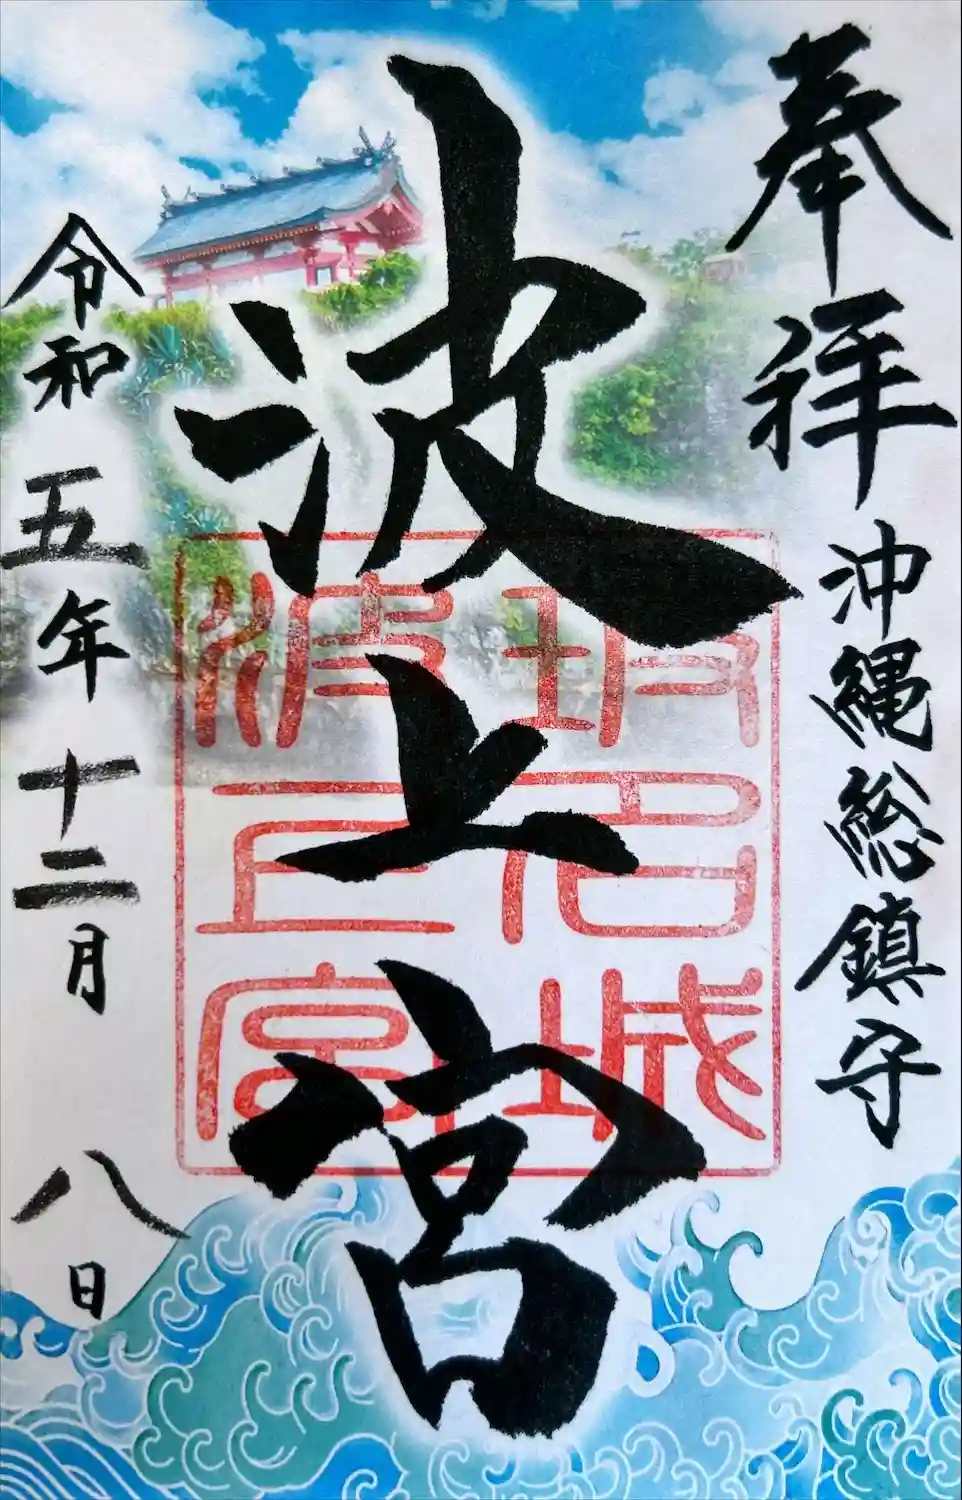 奉拝
沖縄総鎮守
波上宮
令和五年十二月八日
坂名城
波上宮